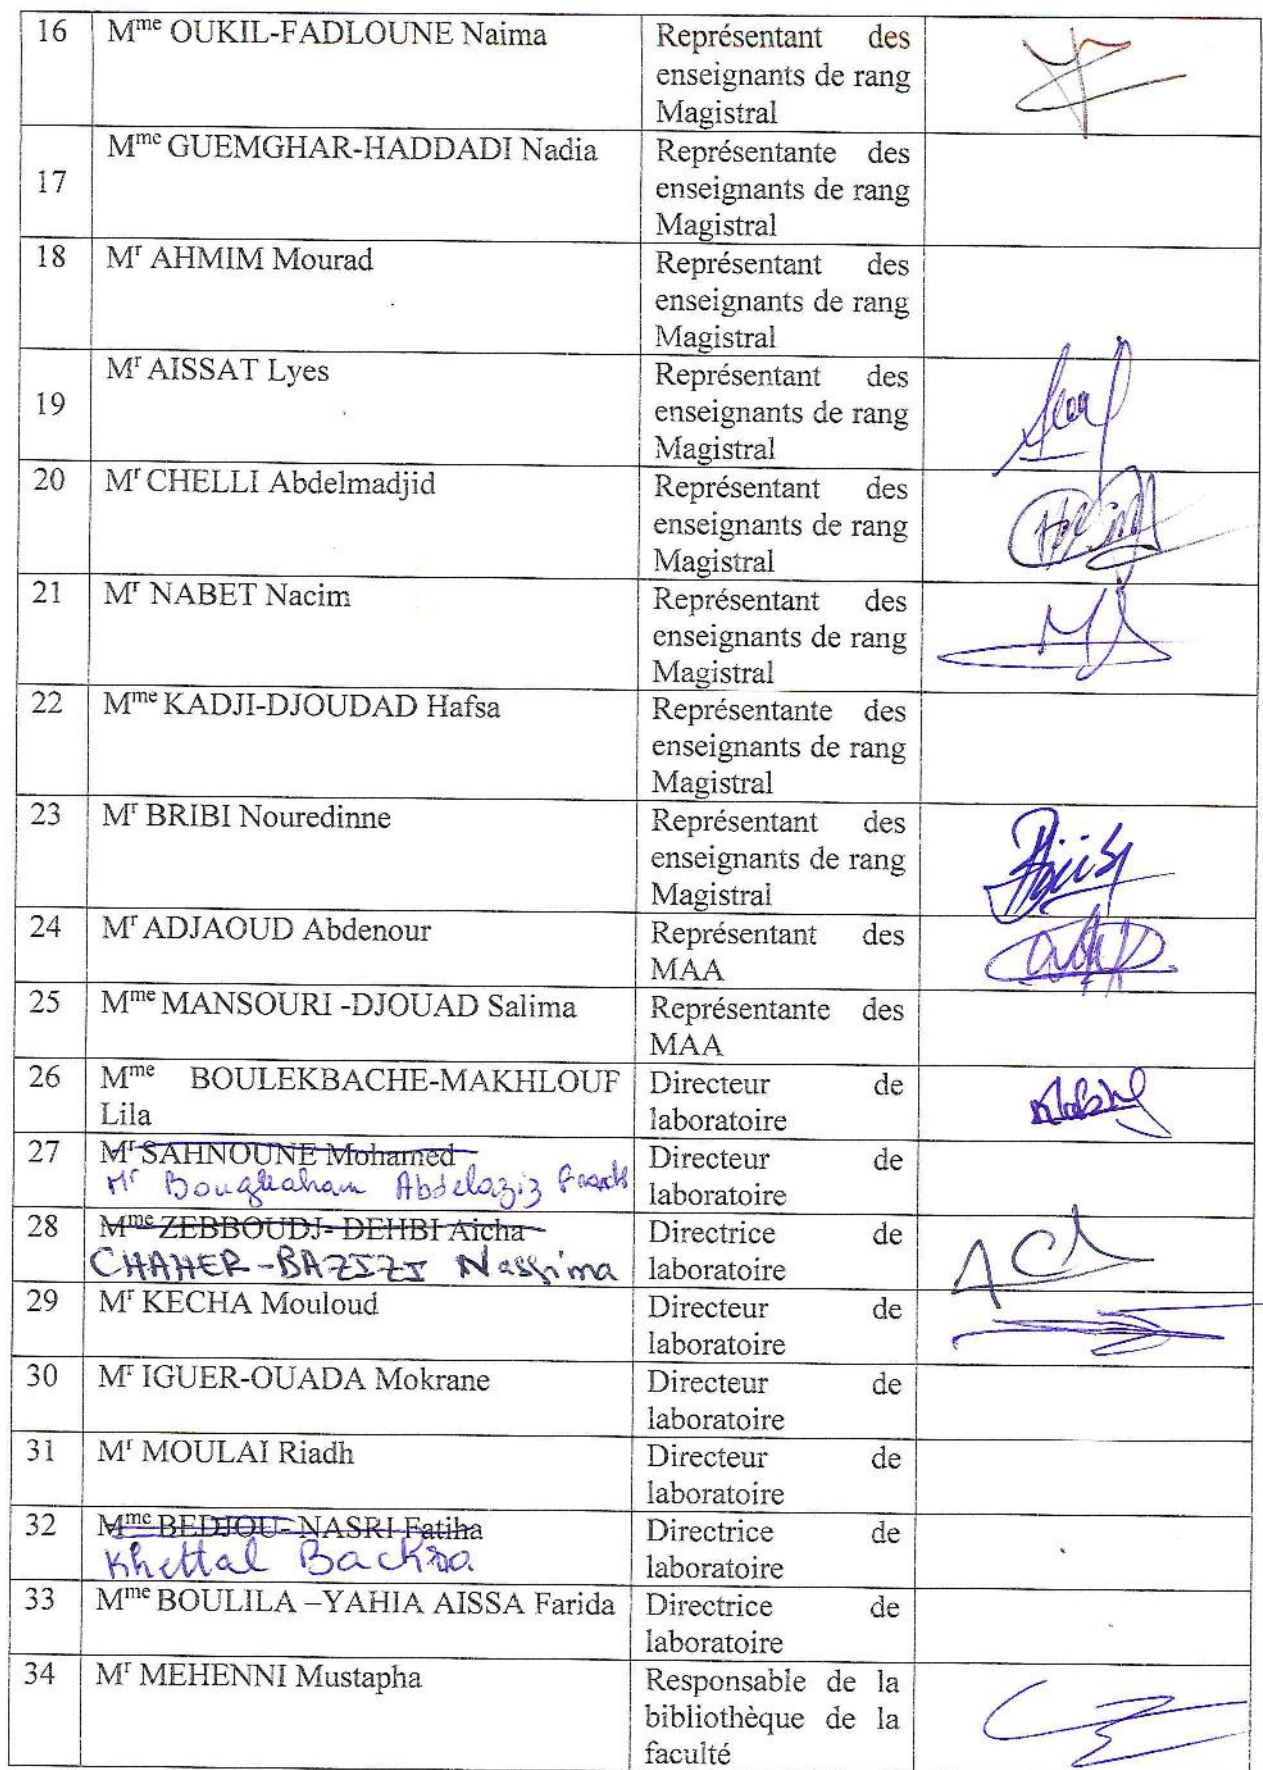 16 Mme OUKIL-FADLOUNE Naima Représentant des
enseignants de rang
Magistral
Mme GUEMGHAR-HADDADI Nadia Représentante des
17 enseignants de rang
Magistral
18 Mr AHMIM Mourad Représentant des
enseignants de rang
Magistral
Mr AISSAT Lyes Représentant des
19 enseignants de rang
Magistral
20 Mr CHELLI Abdelmadjid Représentant des
enseignants de rang
Magistral
21 Mr NABET Nacim Représentant des
enseignants de rang
Magistral
22 Mme KADJI-DJOUDAD Hafsa Représentante des
enseignants de rang
Magistral
23 Mr BRIBI Nouredinne Représentant des
enseignants de rang
Magistral
24 Mr ADJAOUD Abdenour Représentant des
MAA
25 Mme MANSOURI -DJOUAD Salima Représentante des
MAA
26 Mme BOULEKBACHE-MAKHLOUF Directeur de
Lila laboratoire
27 Mr SAHNOUNE Mohamed Directeur de
Mr Abdelaziz laboratoire
28 Mme ZEBBOUDJ- DEHBI Aicha Directrice de
CHAHER-BAZIZI Nassima laboratoire
29 Mr KECHA Mouloud Directeur de
laboratoire
30 Mr IGUER-OUADA Mokrane Directeur de
laboratoire
31 Mr MOULAI Riadh Directeur de
laboratoire
32 Mme BEDJOU- NASRI Fatiha Directrice de
Khettal Bachra laboratoire
33 Mme BOULILA –YAHIA AISSA Farida Directrice de
laboratoire
34 Mr MEHENNI Mustapha Responsable de la
bibliothèque de la
faculté